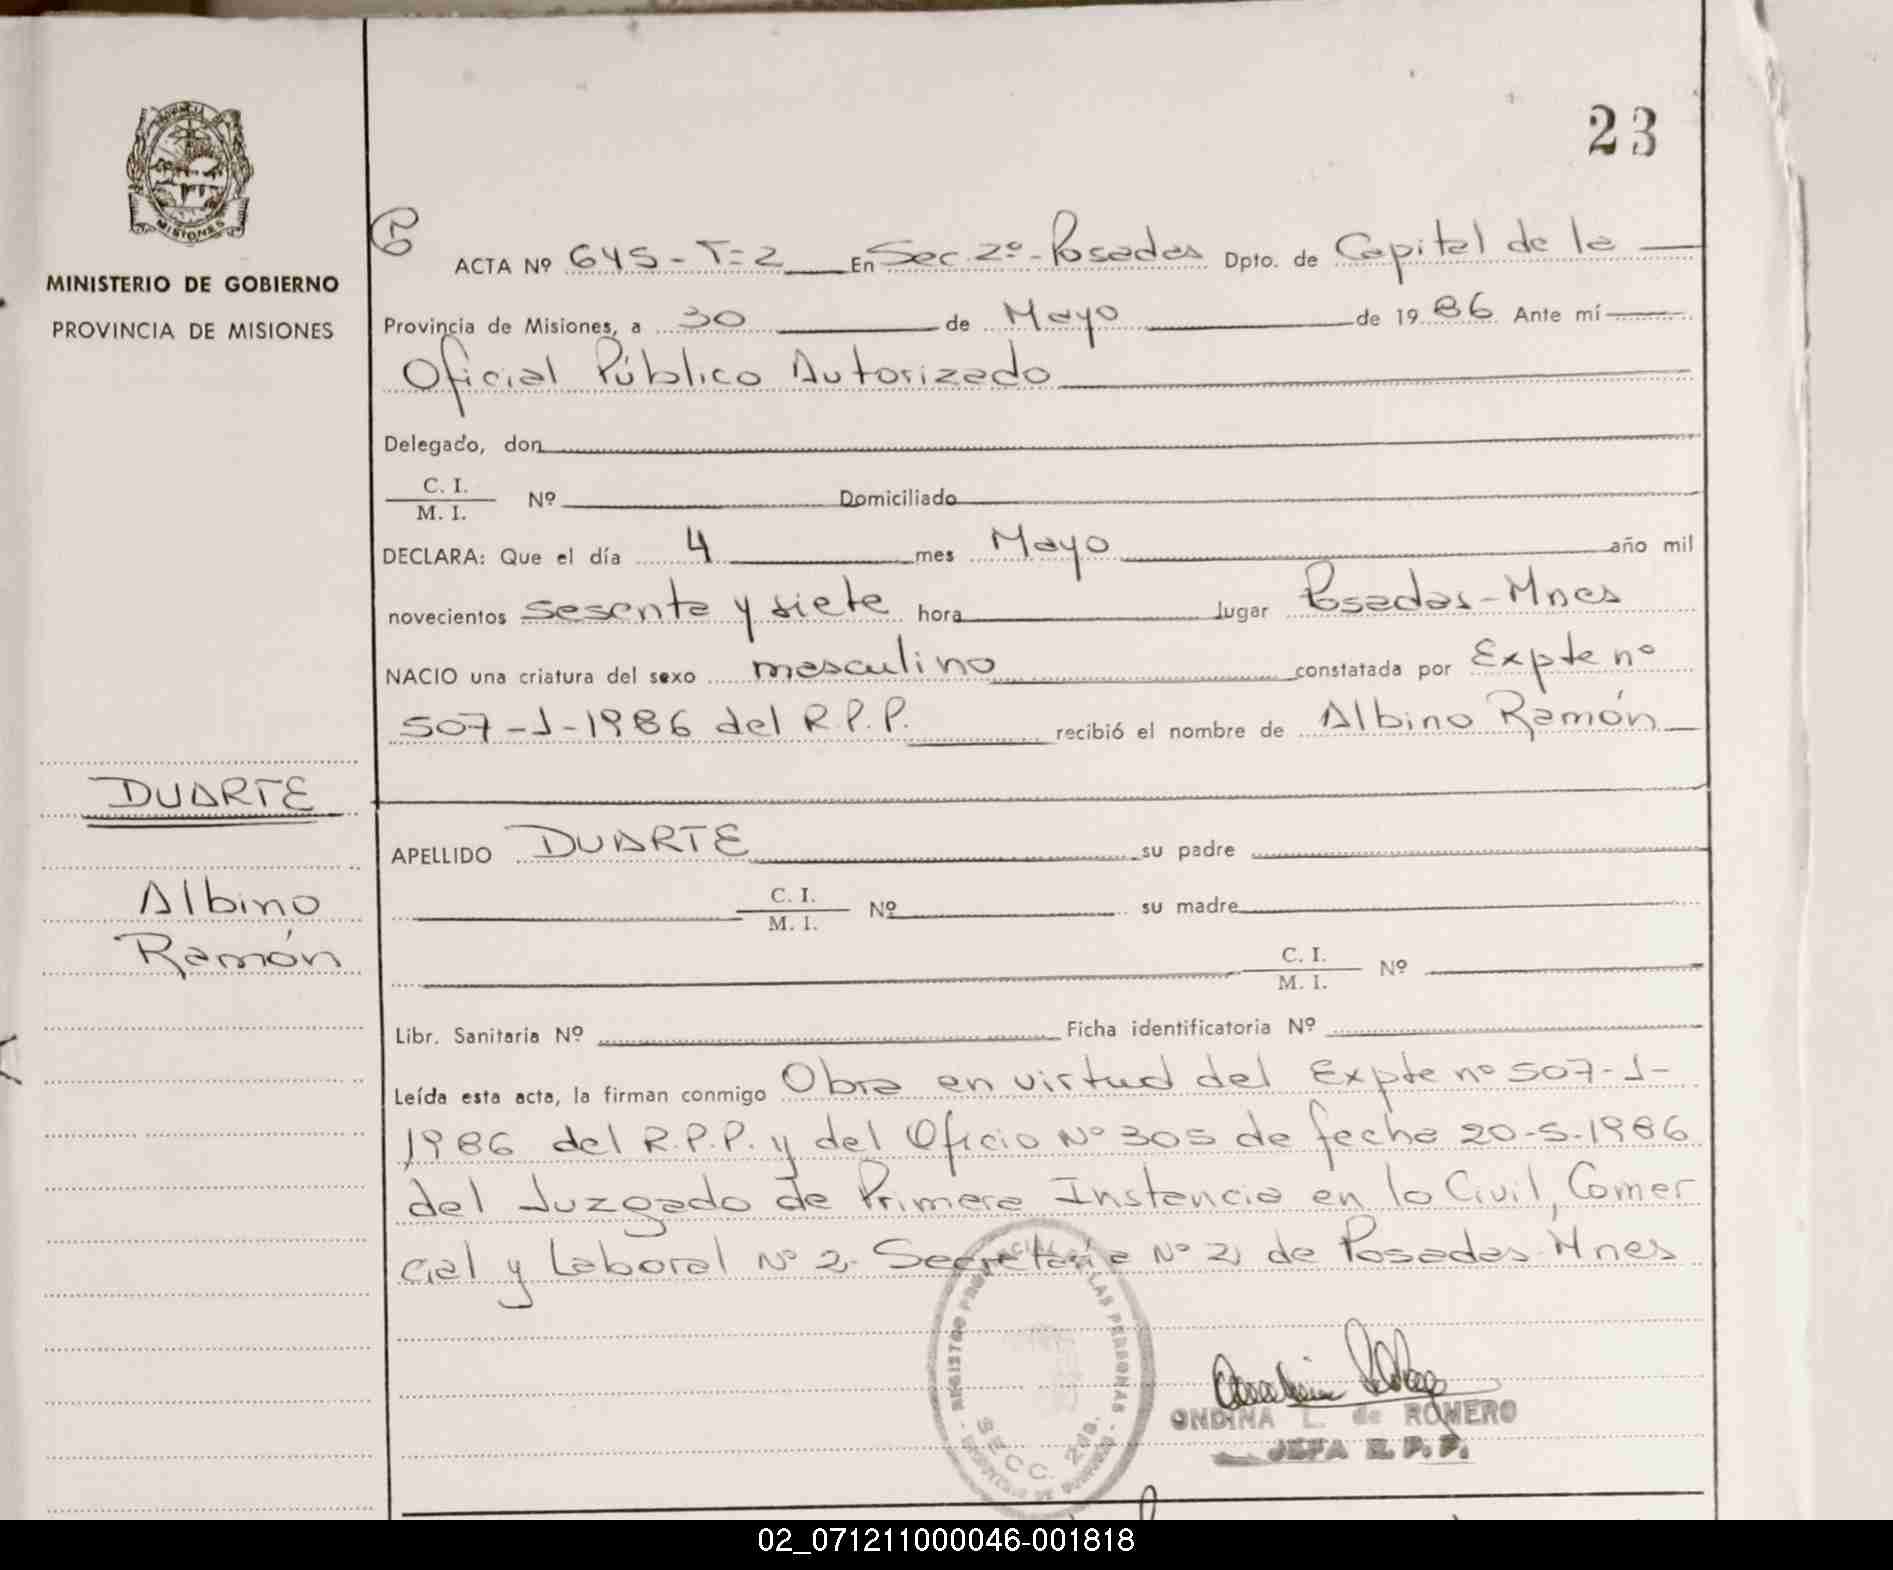 23
PROVINCIA DE
MISIONES
MINISTERIO DE GOBIERNO
PROVINCIA DE MISIONES
ACTA Nº 645-T=2 En Sec. 2º-Posadas Dpto. de Capital de la
Provincia de Misiones, a 30 de Mayo de 1986 Ante mí
Oficial Público Autorizado
Delegado, don
C. I.
M. I. Nº Domiciliado
DECLARA: Que el día 4 mes Mayo año mil
novecientos sesenta y siete hora lugar Posadas-Mnes
NACIO una criatura del sexo masculino constatada por Expte nº
507-J-1986 del R.P.P. recibió el nombre de Albino Ramón
DUARTE
Albino
Ramón
APELLIDO DUARTE su padre
C. I.
M. I. Nº su madre
C. I.
M. I. Nº
Libr. Sanitaria Nº Ficha identificatoria Nº
Leída esta acta, la firman conmigo Obra en virtud del Expte nº 507-J-
1986 del R.P.P. y del Oficio Nº 305 de fecha 20-5-1986
del Juzgado de Primera Instancia en lo Civil, Comer
cial y Laboral Nº 2- Secretaria Nº 2, de Posadas Mnes
REGISTRO PROVINCIAL DE LAS PERSONAS
SECC. 2da.
ONDINA L. de ROMERO
JEFA R. P. P.
02_071211000046-001818